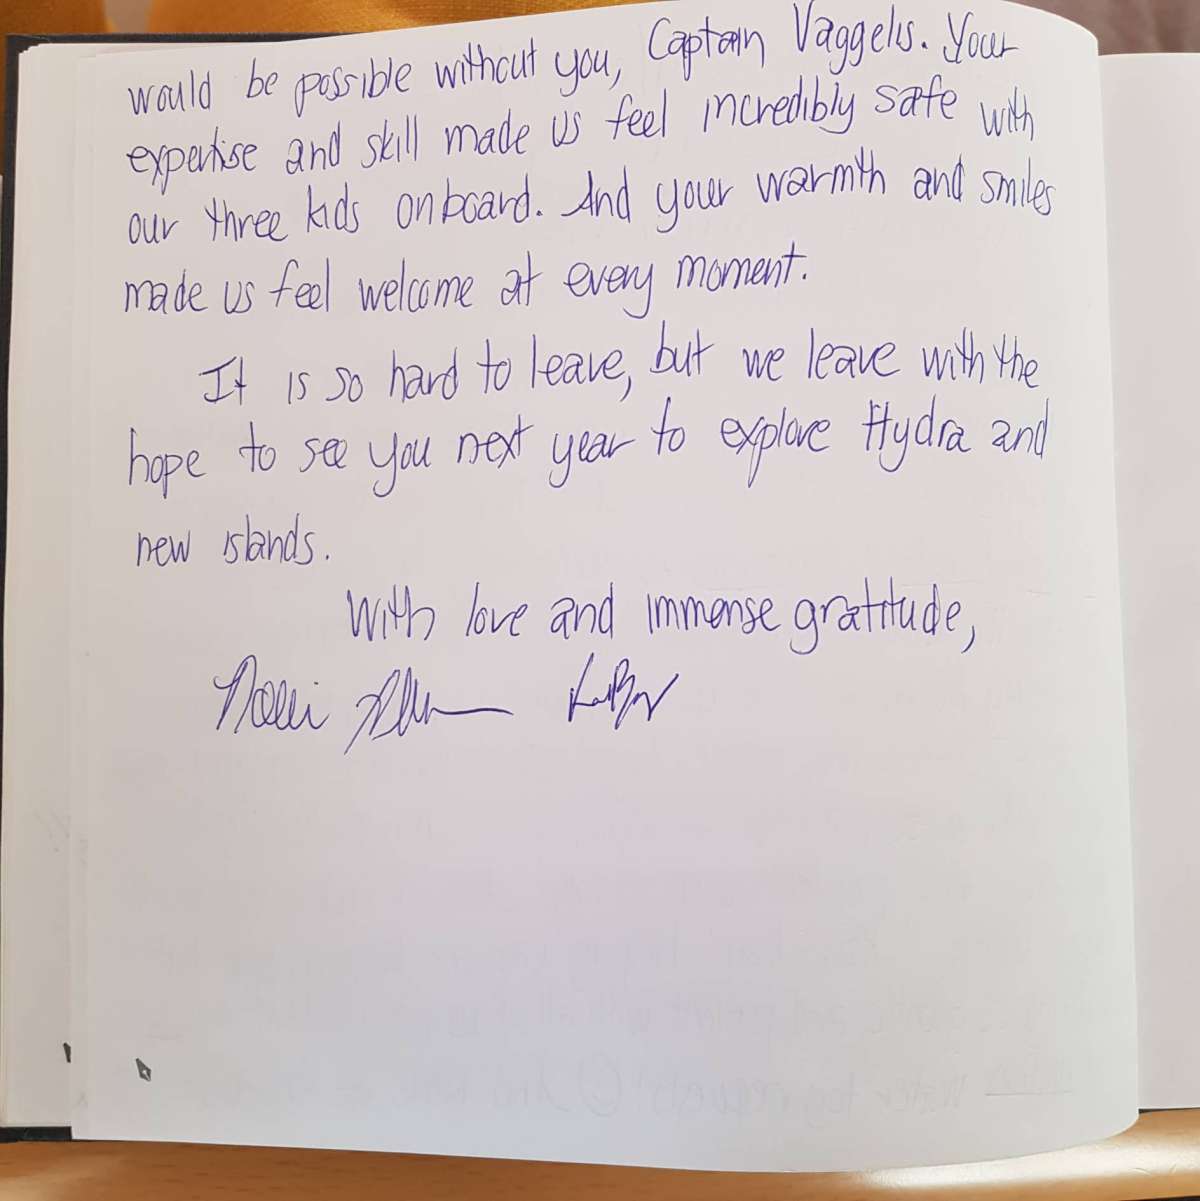 would be possible without you, Captain Vaggelis. Your
expertise and skill made us feel incredibly safe with
our three kids onboard. And your warmth and smiles
made us feel welcome at every moment.
It is so hard to leave, but we leave with the
hope to see you next year to explore Hydra and
new islands.
With love and immense gratitude,